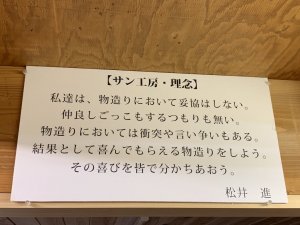 【サン工房・理念】
私達は、物造りにおいて妥協はしない。
仲良しごっこもするつもりも無い。
物造りにおいては衝突や言い争いもある。
結果として喜んでもらえる物造りをしよう。
その喜びを皆で分かちあおう。
松井 進